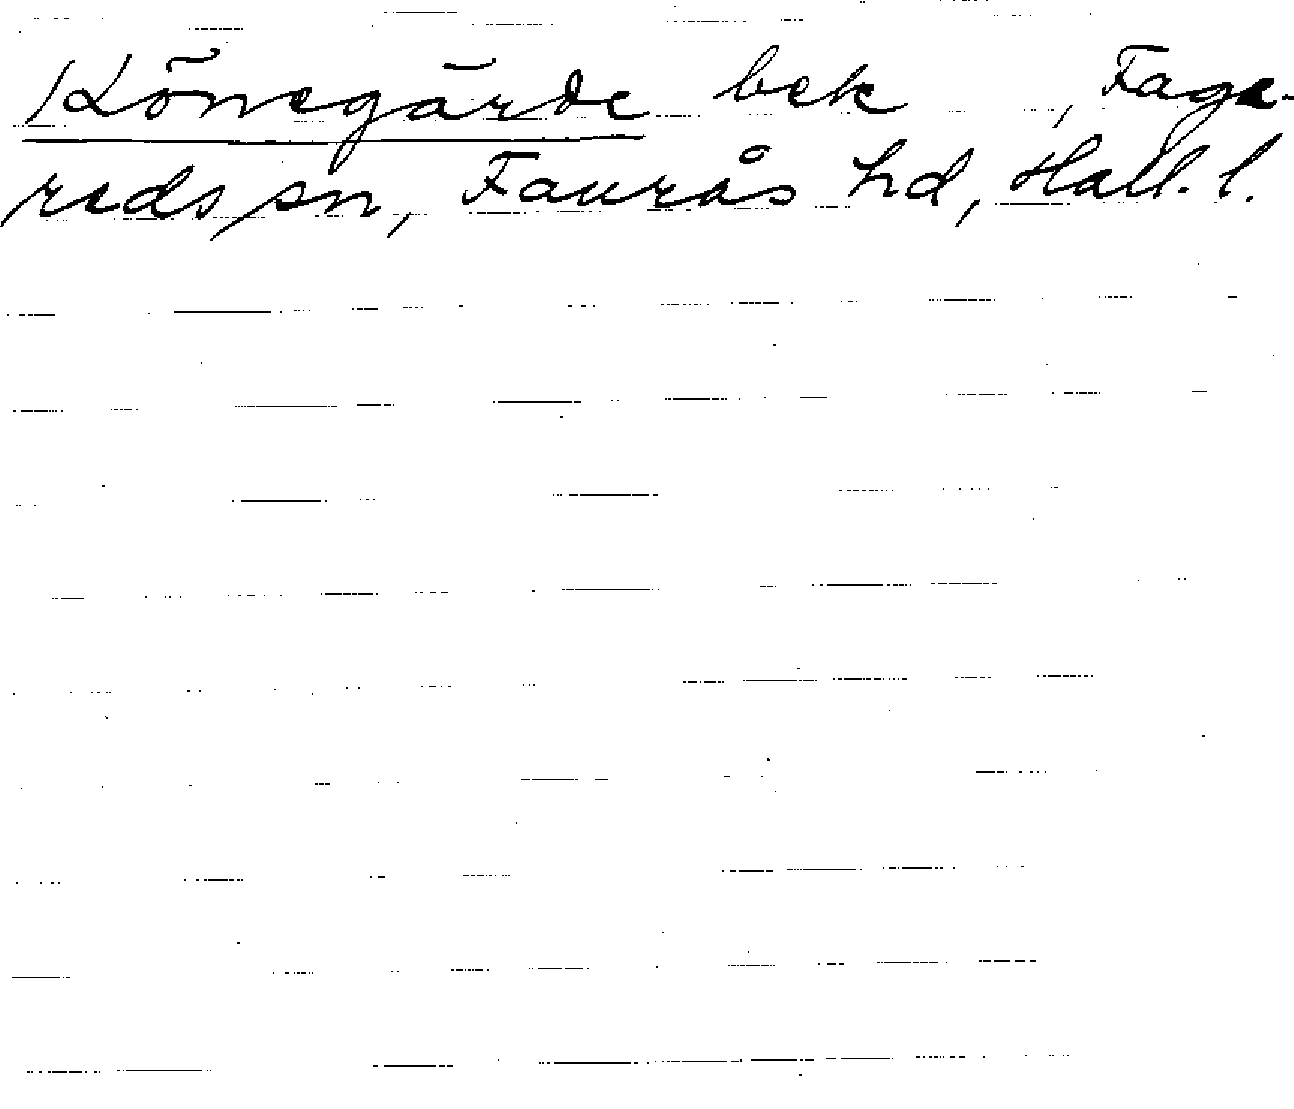 Könegärde bek , Fage-
reds sn, Faurås hd, Hall. l.